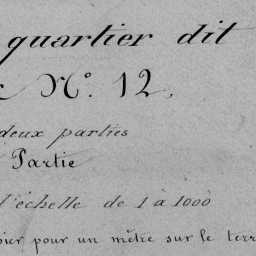 quartier dit
N°. 12.
deux parties
Partie
l'échelle de 1 à 1000
pour un mètre sur le